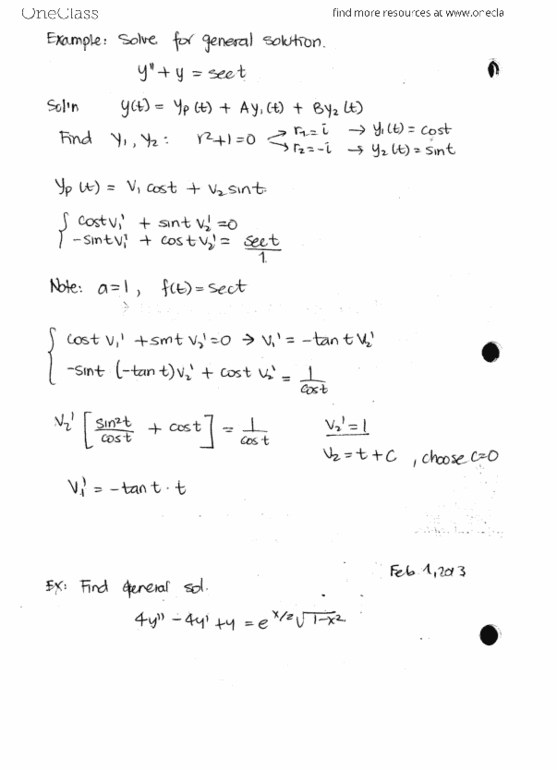 OneClass
find more resources at www.onecla
Example: Solve for general solution.
y" + y = sec t
Sol'n y(t) = yp(t) + Ay₁(t) + By₂(t)
Find y₁, y₂: r²+1=0 → r₁=i → y₁(t) = cost
→ r₂=-i → y₂(t) = sint
yp(t) = v₁ cost + v₂ sint
{ cost v₁' + sint v₂' = 0
-sint v₁' + cost v₂' = sect/1
Note: a=1, f(t) = sect
{ cost v₁' + sint v₂' = 0 → v₁' = -tan t v₂'
-sint (-tan t) v₂' + cost v₂' = 1/cost
v₂' [ sin²t/cost + cost ] = 1/cost v₂' = 1
v₂ = t + C, choose C=0
v₁' = -tan t · t
Feb 1, 2013
Ex: Find general sol.
4y" - 4y' + y = e^(x/2) √(1-x²)